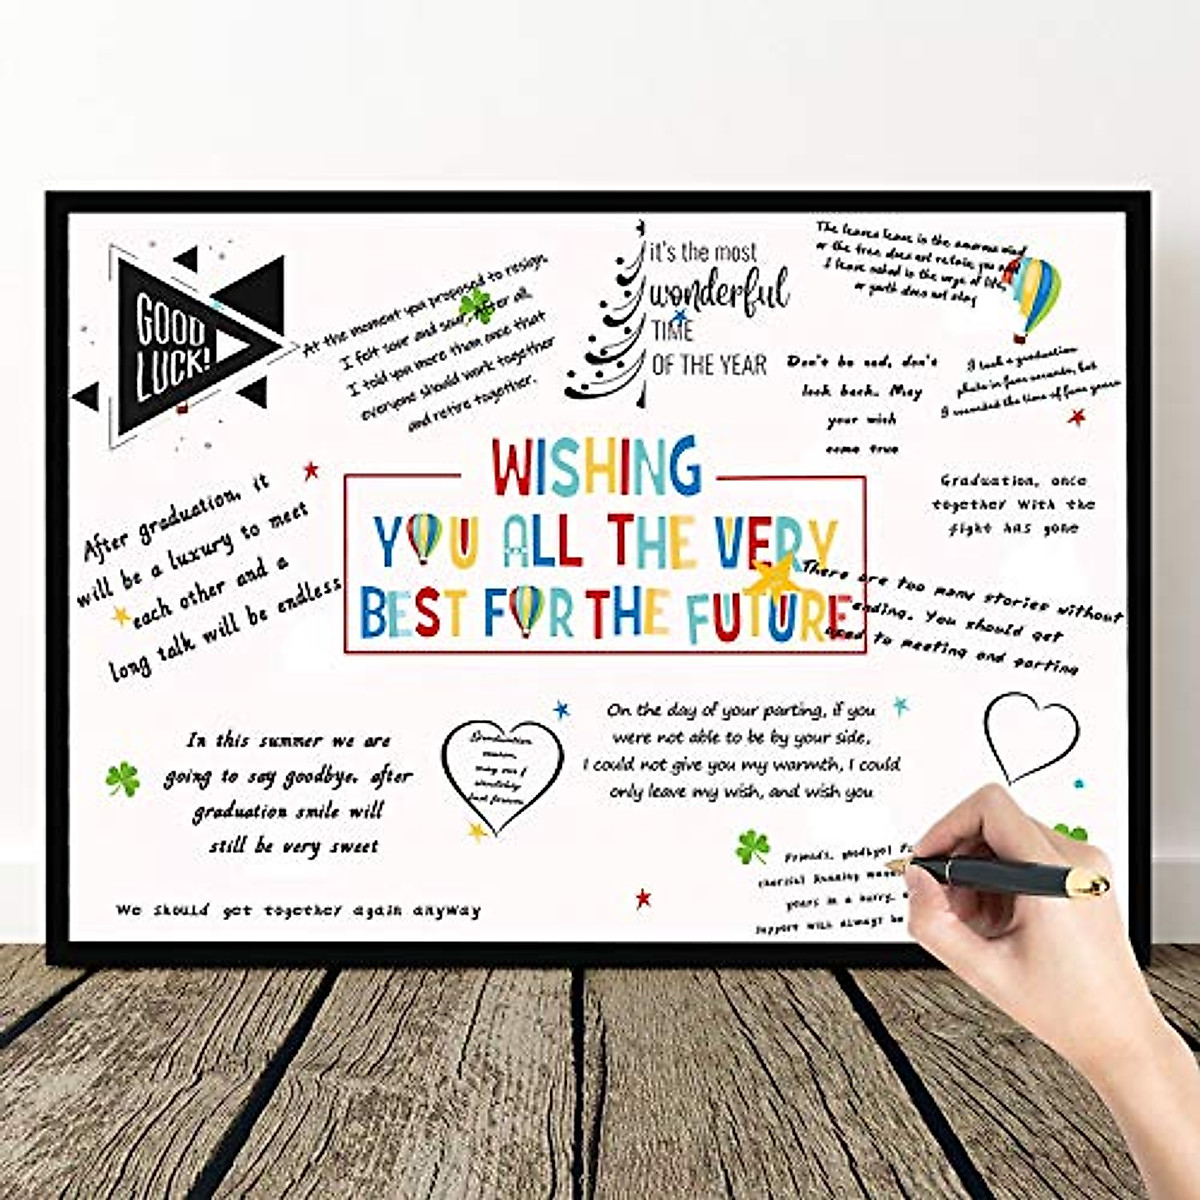 GOOD
LUCK!
At the moment you proposed to resign,
I felt sour and sour. After all,
I told you more than once that
everyone should work together
and retire together.
it's the most
wonderful
TIME
OF THE YEAR
The leaves leave is the amorous wind
or the tree does not retain you and
I leave naked in the urge of life,
or youth does not stay
Don't be sad, don't
look back. May
your wish
come true
I took a graduation
photo in four seconds, but
I recorded the time of four years
After graduation, it
will be a luxury to meet
each other and a
long talk will be endless
WISHING
YOU ALL THE VERY
BEST FOR THE FUTURE
Graduation, once
together With the
fight has gone
There are too many stories without
ending. You should get
used to meeting and parting
In this summer we are
going to say goodbye, after
graduation smile will
still be very sweet
Graduation
season,
may our f
last forever
On the day of your parting, if you
were not able to be by your side,
I could not give you my warmth, I could
only leave my wish, and wish you
Friends, goodbye!
cheerful Running
years in a hurry,
support will always be
We should get together again anyway